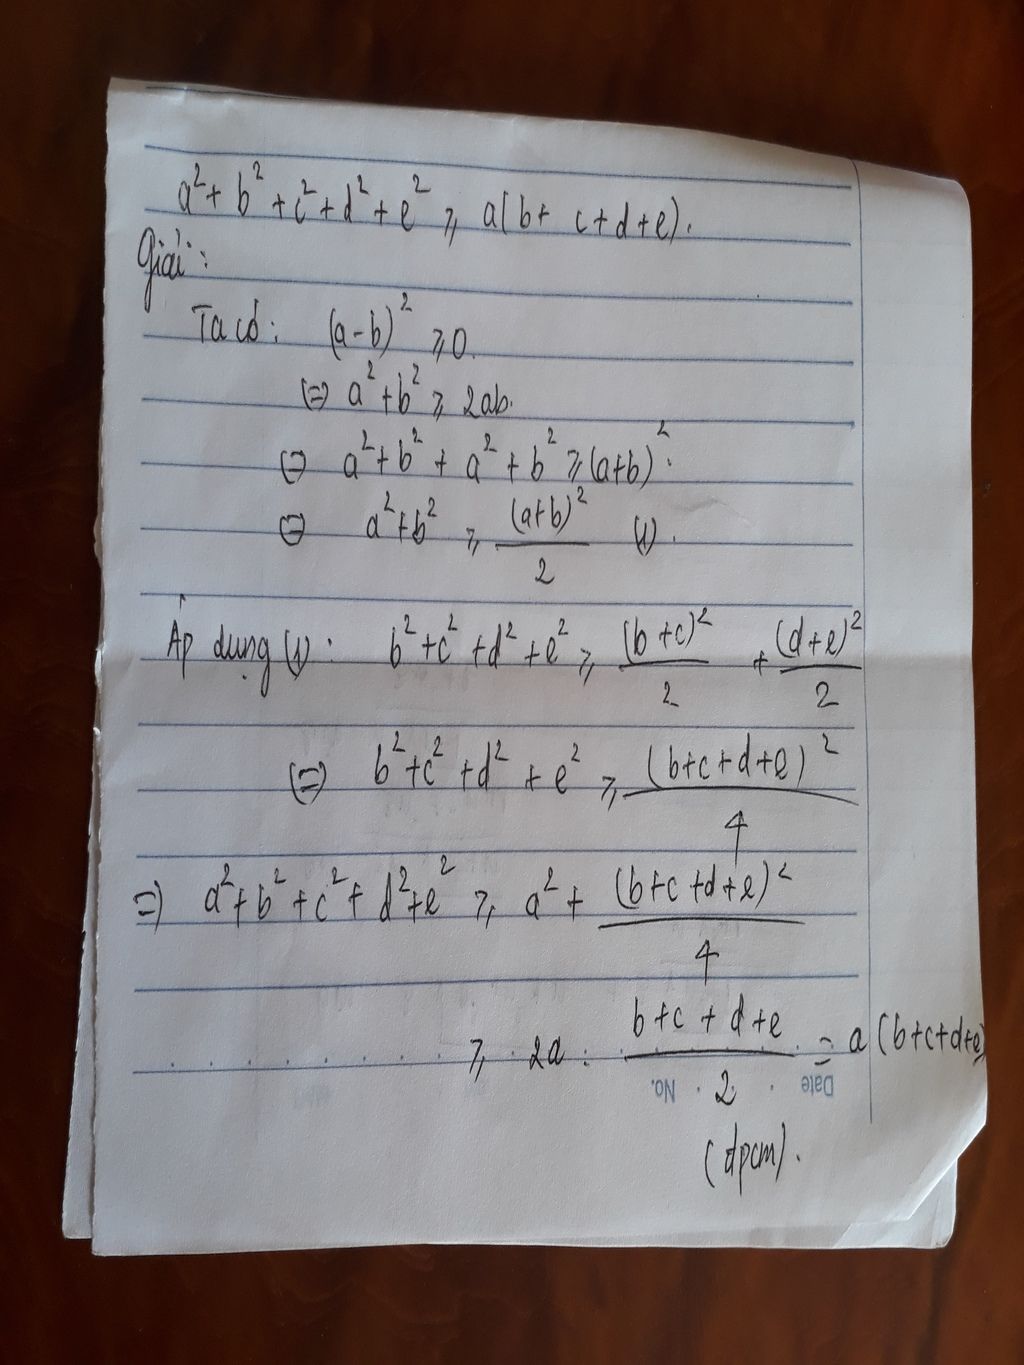 a² + b² + c² + d² + e² ⩾ a(b + c + d + e).
Giải:
Ta có: (a - b)² ⩾ 0.
(=) a² + b² ⩾ 2ab.
(=) a² + b² + a² + b² ⩾ (a+b)².
(=) a² + b² ⩾ (a+b)²/2 (1).
Áp dụng (1): b² + c² + d² + e² ⩾ (b+c)²/2 + (d+e)²/2
(=) b² + c² + d² + e² ⩾ (b+c+d+e)²/4
=) a² + b² + c² + d² + e² ⩾ a² + (b+c+d+e)²/4
⩾ 2a . (b+c+d+e)/2 = a(b+c+d+e)
No. Date
(dpcm).